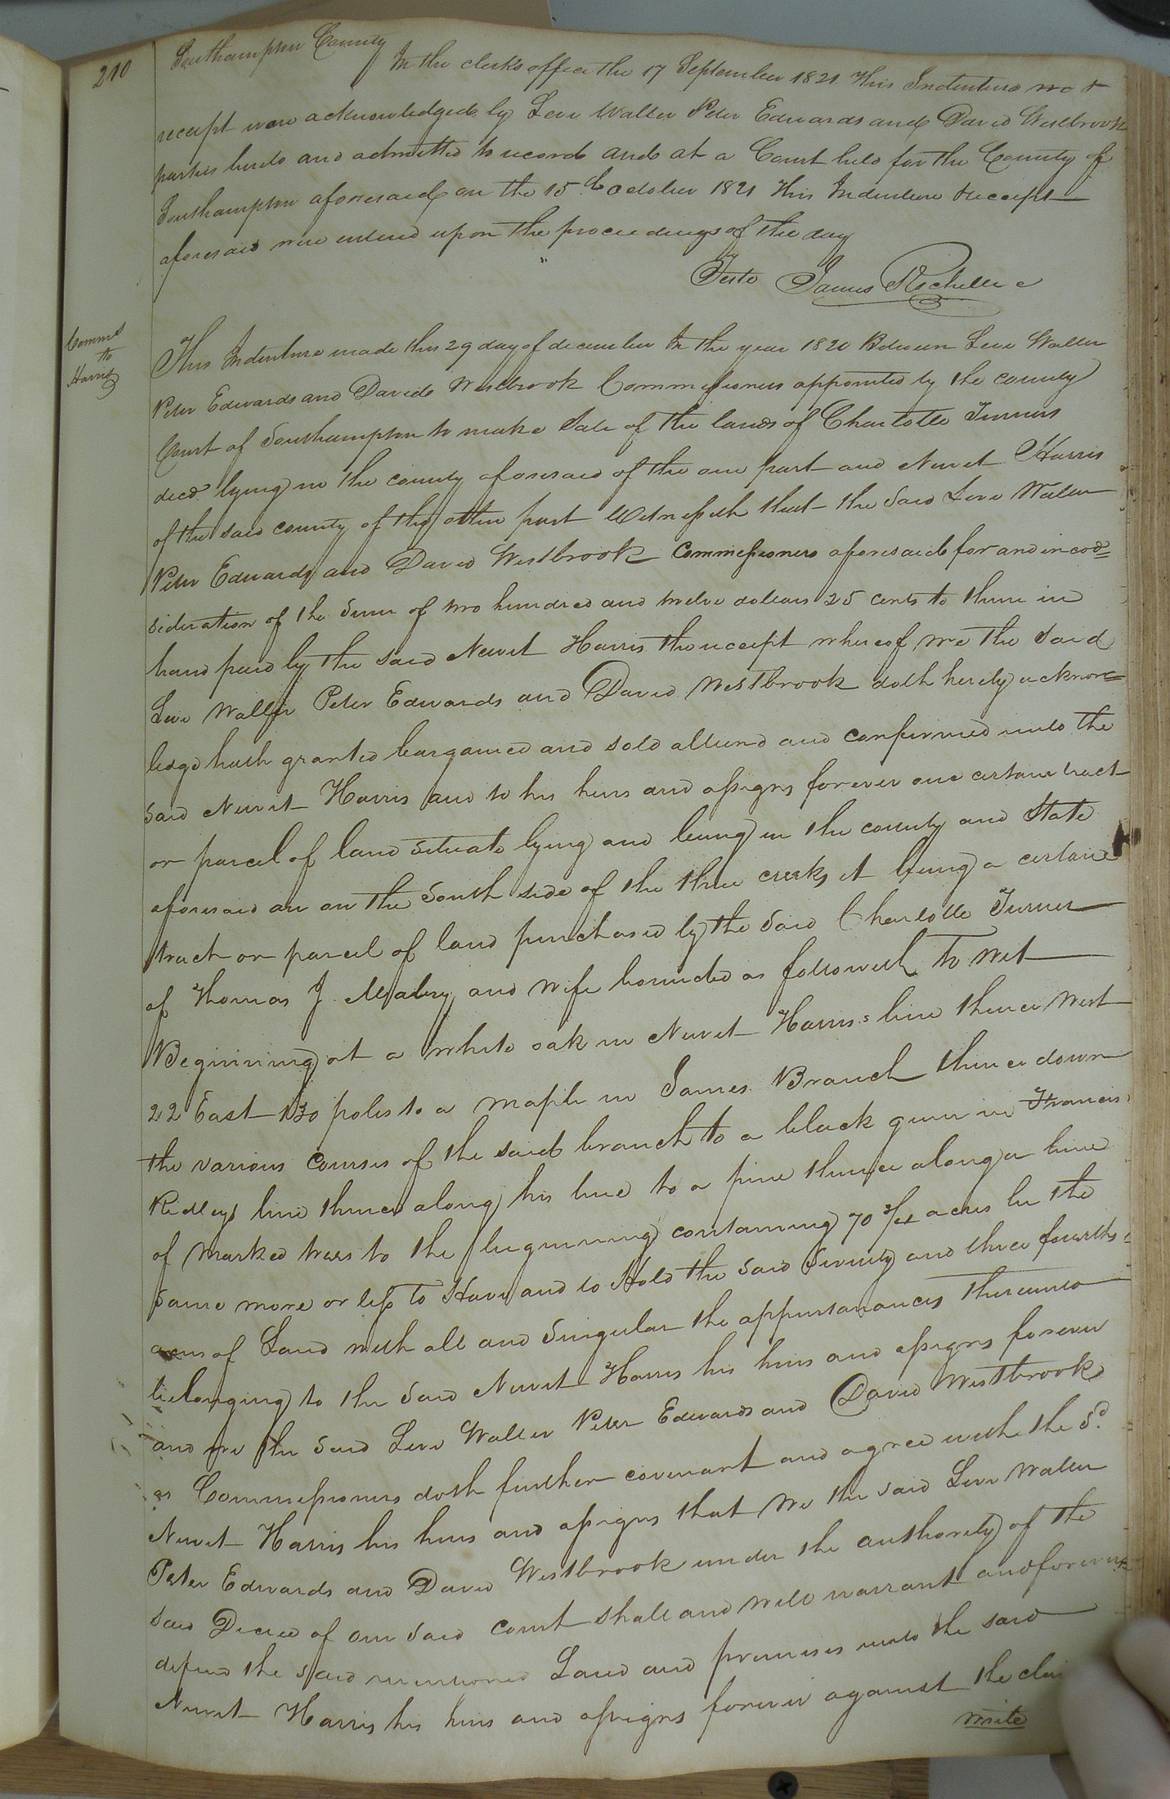 210
Southampton County
In the clerks office the 17 September 1821 This Indenture and
receipt were acknowledged by Levi Waller Peter Edwards and David Westbrook
parties hereto and admitted to record and at a Court held for the County of
Southampton aforesaid on the 15 October 1821 This Indenture & receipt
aforesaid were entered upon the proceedings of the day
Teste James Rochelle c
Comms
to
Harris
This Indenture made this 29 day of december In the year 1820 Between Levi Waller
Peter Edwards and David Westbrook Commissioners appointed by the county
Court of Southampton to make Sale of the lands of Charlotte Turner
decd. lying in the county aforesaid of the one part and Newit Harris
of the said county of the other part Witnesseth that the Said Levi Waller
Peter Edwards and David Westbrook Commissioners aforesaid for and in con=
sideration of the Sum of two hundred and twelve dollars 25 cents to them in
hand paid by the said Newit Harris the receipt whereof we the Said
Levi Waller Peter Edwards and David Westbrook doth hereby acknow=
ledge hath granted bargained and sold aliend and confirmed unto the
Said Newit Harris and to his heirs and assigns forever one certain tract
or parcel of land Situate lying and being in the county and State
aforesaid on the South side of the three creeks it being a certain
tract or parcel of land purchased by the Said Charlotte Turner
of Thomas J. Mabry and wife bounded as followeth To wit
Beginning at a white oak in Newit Harris's line thence West
22 East 130 poles to a maple in James Branch thence down
the various Courses of the said branch to a black gum in Francis
Ridleys line thence along his line to a pine thence along a line
of marked trees to the beginning containing 70 3/4 acres be the
Same more or less To Have and to Hold the Said Seventy and three fourths
acres of Land with all and Singular the appurtanances thereunto
belonging to the Said Newit Harris his heirs and assigns forever
and we the Said Levi Waller Peter Edwards and David Westbrook
as Commissioners doth further covenant and agree with the Sd.
Newit Harris his heirs and assigns that We the said Levi Waller
Peter Edwards and David Westbrook under the authority of the
Said Decree of our Said Court shall and will warrant and forever
defend the said mentioned Land and premises unto the said
Newit Harris his heirs and assigns forever against the